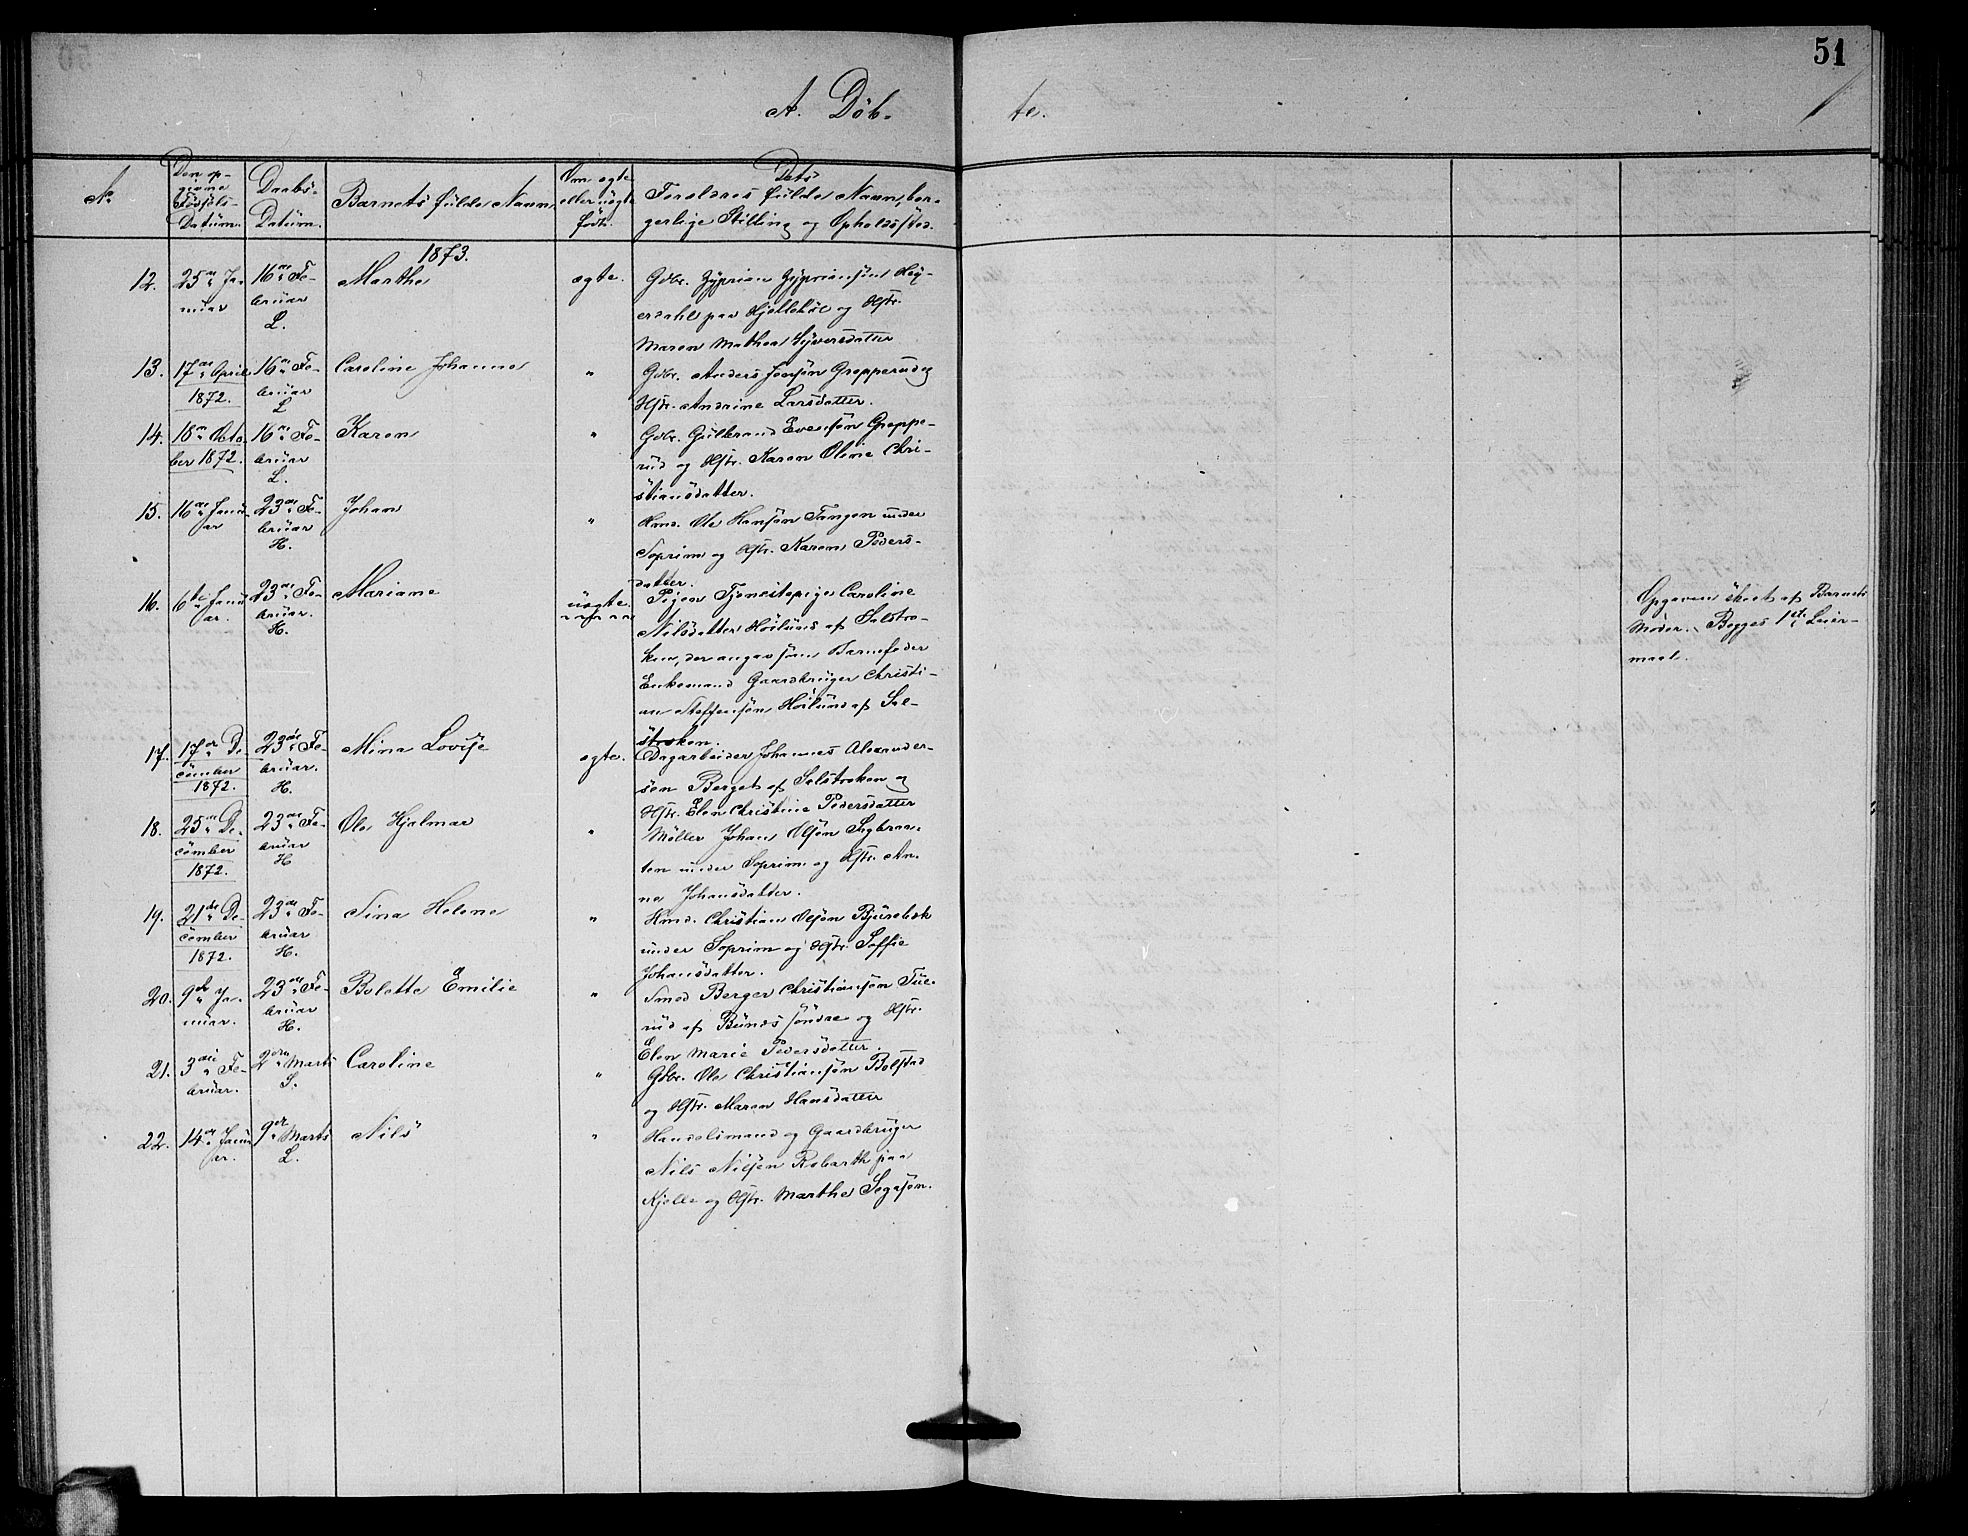 51
A. Döb-
te.
No
Den op-
givne
Födsels-
Datum.
Daabs-
Datum.
Barnets fulde Navn.
Om ægte
eller uægte
født.
Dets
Forældres fulde Navn, bor-
gerlige Stilling og Opholdssted.
1873.
12.
25de Ja-
nuar
16de Fe-
bruar
L.
Marthe
ægte.
Gdbr. Zyprian Zypriansøn Høy-
erdahl paa Hjellebøl og Hstr.
Maren Mathea Syversdatter
13.
17de April
1872.
16de Fe-
bruar
L
Caroline Johanne
"
Gdbr. Anders Jensøn Grepperud og
Hstr. Andrine Larsdatter.
14.
18de Octo-
ber 1872.
16de Fe-
bruar
L.
Karen
"
Gdbr. Gulbrand Evensøn Greppe-
rud og Hstr. Karen Oline Chri-
stiansdatter.
15.
16de Janu-
ar
23de Fe-
bruar
H.
Johan
"
Hmd. Ole Hansøn Tangen under
Soprim og Hstr. Karen Peders-
datter.
16.
6te Janu-
ar.
23de Fe-
bruar.
H.
Mariane
uægte.
Pigen Tjenestepige Caroline
Nilsdatter Höilund af Selstro-
ken, der angav som Barnefader
Enkemand Gaardbruger Christi-
an Steffensøn Höilund af Sel-
stroken.
Opgaven skeet af Barnets
Moder. Begges 1ste Leier-
maal.
17.
17de De-
cember
1872.
23de Fe-
bruar.
H.
Mina Lovise
ægte.
Dagarbeider Johannes Alexander-
søn Berget af Selstroken og
Hstr. Elen Christine Pedersdatter
18.
25de De-
cember
1872.
23de Fe-
bruar
H
Ole Hjalmar
"
Möller Johan Olsøn Sagbraa-
ten under Soprim og Hstr. An-
ne Johansdatter.
19.
21de De-
cember
1872.
23de Fe-
bruar
H.
Sina Helene
"
Hmd. Christian Olsøn Bjurebæk
under Soprim og Hstr. Soffie
Johansdatter.
20.
9de Ja-
nuar.
23de Fe-
bruar
H.
Bolette Emilie
"
Smed Berger Christiansøn Tue-
rud af Bunæs søndre og Hstr.
Elen Marie Pedersdatter.
21.
3die Fe-
bruar.
2den Marts
S.
Caroline
"
Gdbr. Ole Christiansøn Bolstad
og Hstr. Maren Hansdatter
22.
14de Janu-
ar.
9de Marts
L.
Nils
"
Handelsmand og Gaardbruger
Nils Nilsen Robarth paa
Kjelle og Hstr. Marthe Segasøn.